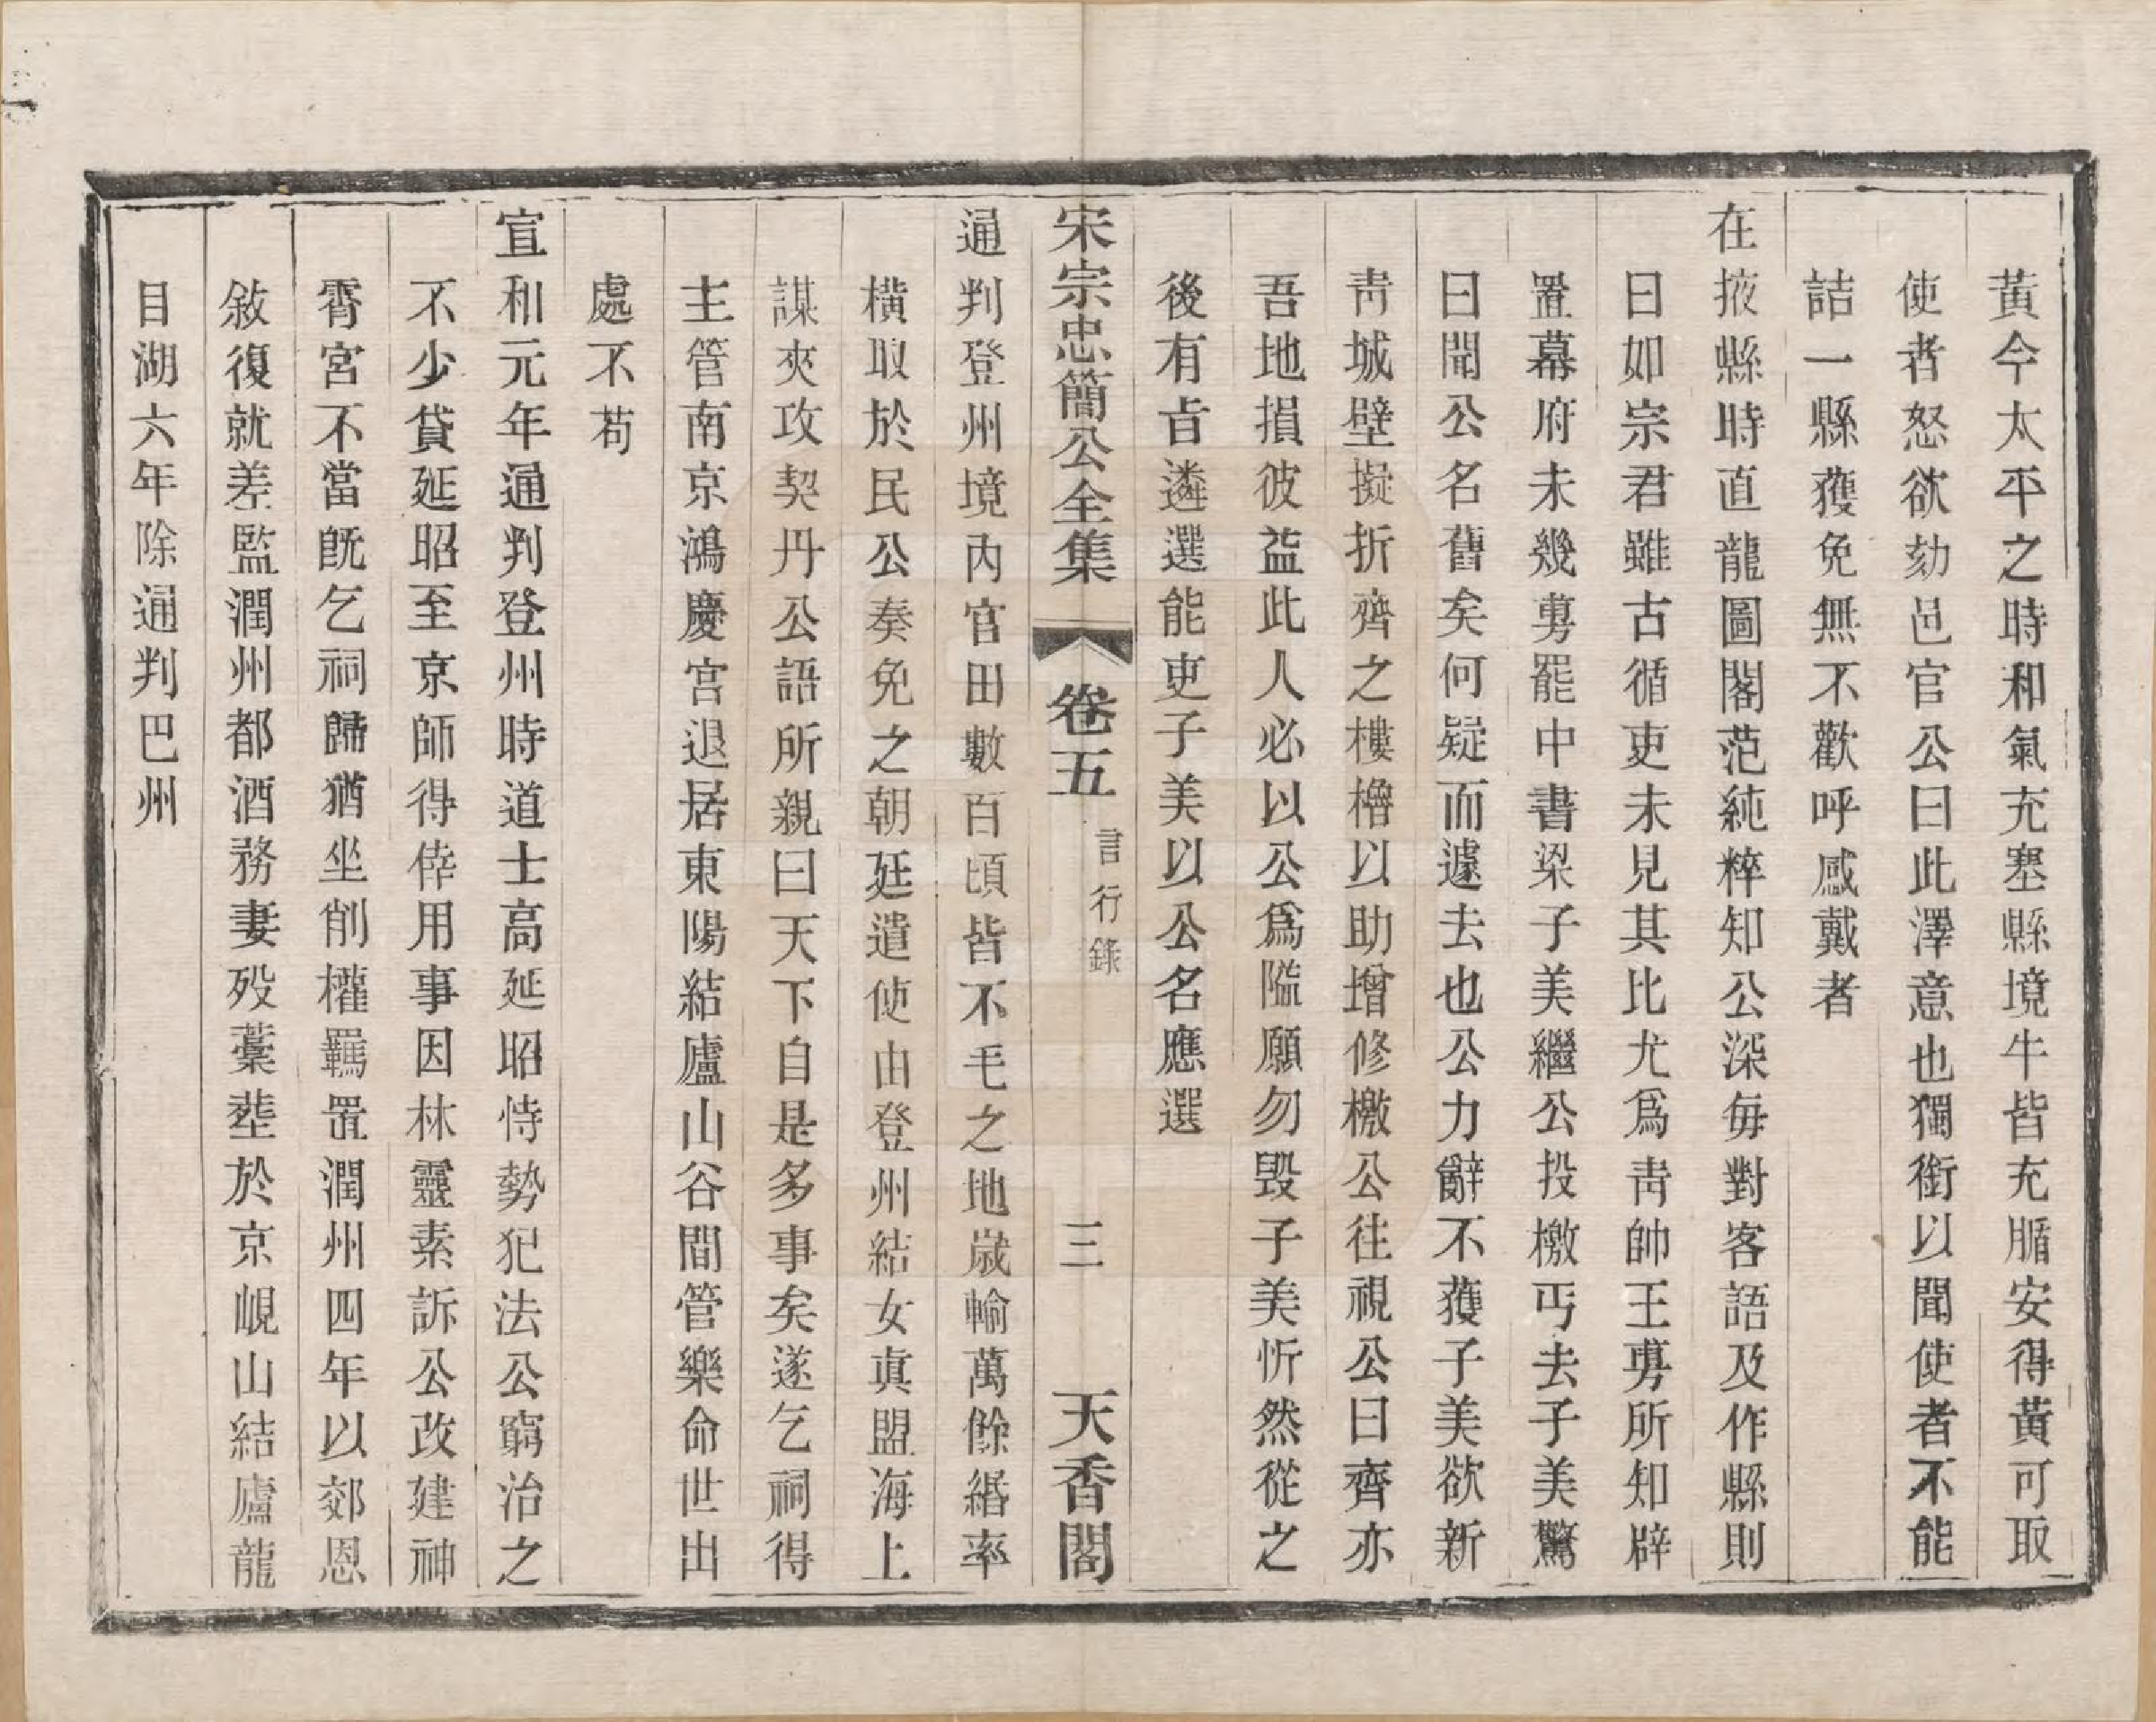 黃今太平之時和氣充塞縣境牛皆充腯安得黃可取
使者怒欲劾邑官公曰此澤意也獨銜以聞使者不能
詰一縣獲免無不歡呼感戴者
在掖縣時直龍圖閣范純粹知公深每對客語及作縣則
曰如宗君雖古循吏未見其比尤爲靑帥王旉所知辟
置幕府未幾旉罷中書梁子美繼公投檄丐去子美驚
曰聞公名舊矣何疑而遽去也公力辭不獲子美欲新
靑城壁擬折齊之樓櫓以助增修檄公往視公曰齊亦
吾地損彼益此人必以公爲隘願勿毀子美忻然從之
後有旨遴選能吏子美以公名應選
宋宗忠簡公全集 卷五 言行錄 三 天香閣
通判登州境內官田數百頃皆不毛之地歲輸萬餘緡率
橫取於民公奏免之朝廷遣使由登州結女眞盟海上
謀夾攻契丹公語所親曰天下自是多事矣遂乞祠得
主管南京鴻慶宮退居東陽結廬山谷間管樂命世出
處不苟
宣和元年通判登州時道士高延昭恃勢犯法公窮治之
不少貸延昭至京師得倖用事因林靈素訴公改建神
霄宮不當旣乞祠歸猶坐削權羈置潤州四年以郊恩
敘復就差監潤州都酒務妻歿藁塟於京峴山結廬龍
目湖六年除通判巴州